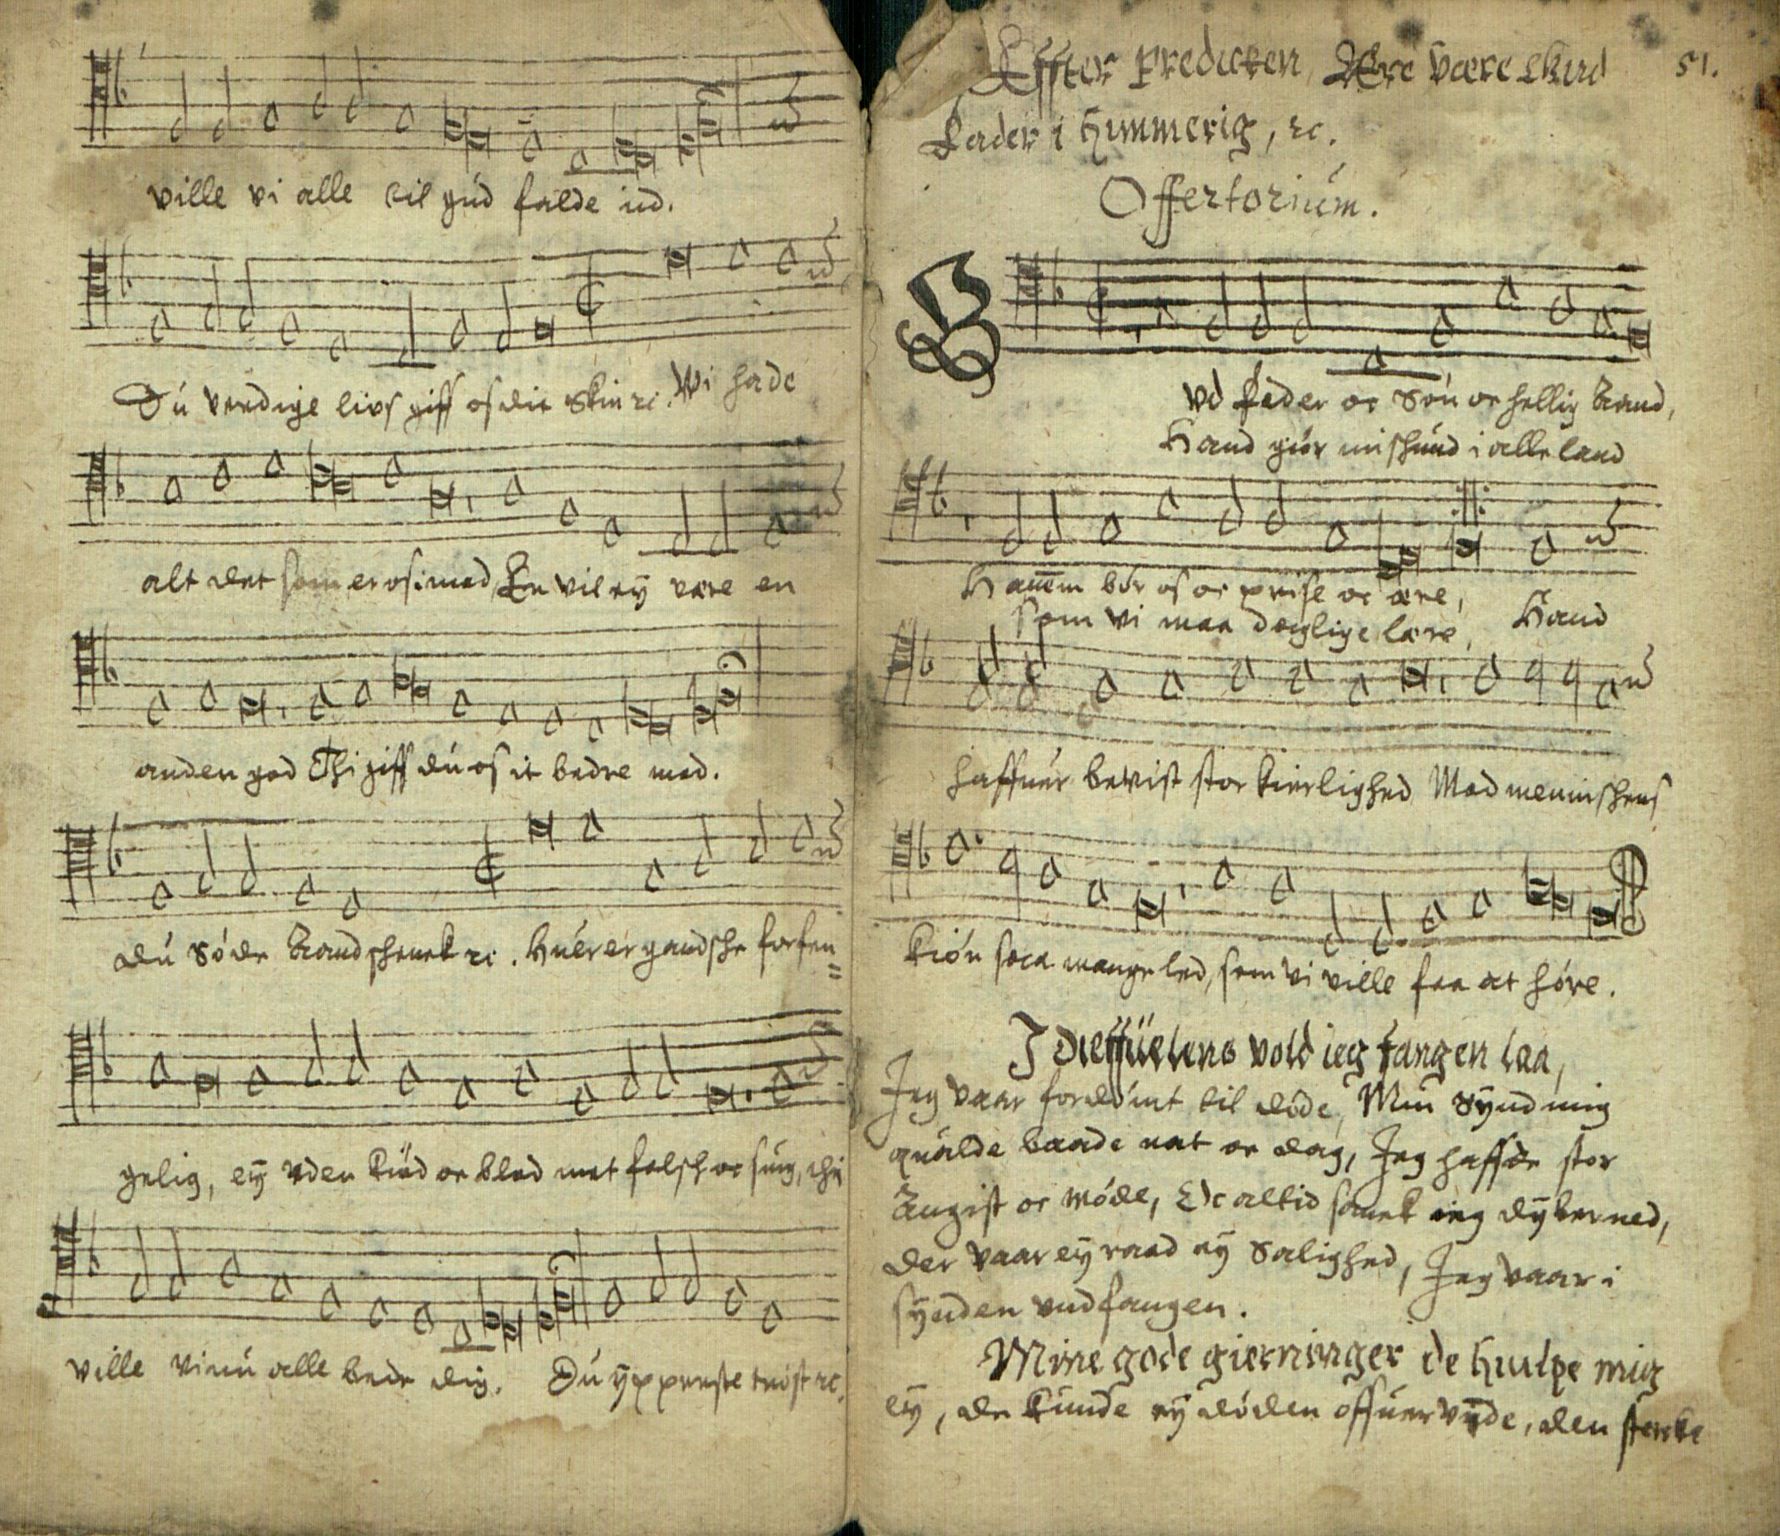 ville vi alle til gúd falde ind.
Dú verdige livs giff os dit Skin ꝛc. Wi hade
alt det som er os imod, En vil eÿ være en
anden god Thi giff dú os it bedre mod.
dú Söde Aand schenck ꝛc. Húer er gandsche forfen=
gelig, eÿ uden Kiöd oc blod met falsch oc suig, thi
ville vi nú alle bede dig. Dú ÿpperste tröst ꝛc.
Effter Predicken, Ære være Gud 51.
Fader i Himmerig, ꝛc.
Offertoriúm.
Gvd Fader oc Sön oc hellig Aand,
Hand giör mischúnd i alle land
Hannem bör os oc prise oc ære,
som vi maa daglige lære, Hand
haffúer bevist stor kierlighed Mod mennischens
kiön saa mange led, som vi ville faa at höre.
I Dieffúelens vold ieg fangen laa,
Jeg vaar fordömt til döde, Min Sÿnd mig
qúalde baade nat oc dag, Jeg haffde stor
Angist oc möde, Oc altid sanck ieg dÿber ned,
der vaar eÿ raad eÿ Salighed, Jeg vaar i
sÿnden undfangen.
Mine gode gierninger de hulpe mig
eÿ, de kúnde eÿ döden offúervÿnde, den stercke